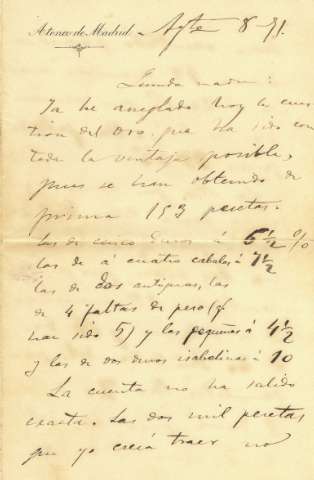 Ateneo de Madrid Agte 8-91.
Querida madre:
Ya he arreglado hoy la cues
tion del oro, que ha sido con
toda la ventaja posible,
pues se han obtenido de
prima 153 pesetas.
Las de cinco duros á 5 1/2 0/0
las de á cuatro cabales á 7 1/2
las de dos antiguas, las
de 4 faltas de peso (q.
han sido 5) y las pequeñas á 4 1/2
y las de dos duros isabelinas á 10
La cuenta no ha salido
exacta. Las dos mil pesetas,
que yo creia traer no